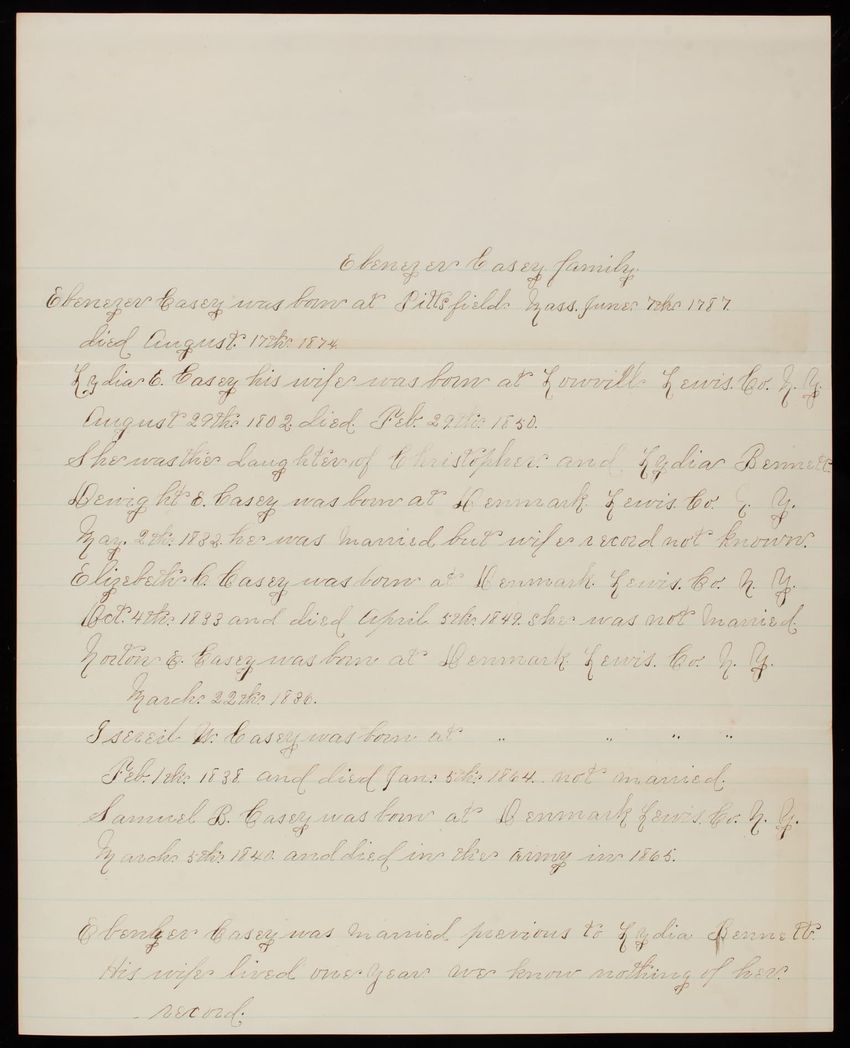 Ebenezer Casey family.
Ebenezer Casey was born at Pittsfield Mass. June 7th 1787.
died August 17th 1874.
Lydia C. Casey his wife was born at Lowvill Lewis. Co. N. Y.
August 29th 1802. died. Feb. 29th 1850.
She was the daughter of Christopher and Lydia Bennett
Dewight E. Casey was born at Denmark Lewis. Co. N. Y.
May. 2th. 1832. he was married but wife record not known.
Elizebeth C. Casey was born at Denmark. Lewis. Co. N. Y.
Oct. 4th 1833 and died April 5th. 1849. She was not married
Norton E. Casey was born at Denmark Lewis. Co. N. Y.
March 22th 1836.
W. Casey was born at " " " "
Feb. 1th 1838 and died Jan. 5th 1864. not married.
Samuel B. Casey was born at Denmark Lewis. Co. N. Y.
March 5th 1840. and died in the army in 1865.
Ebenzer Casey was married previous to Lydia Bennett.
His wife lived one year we know nothing of her
record.